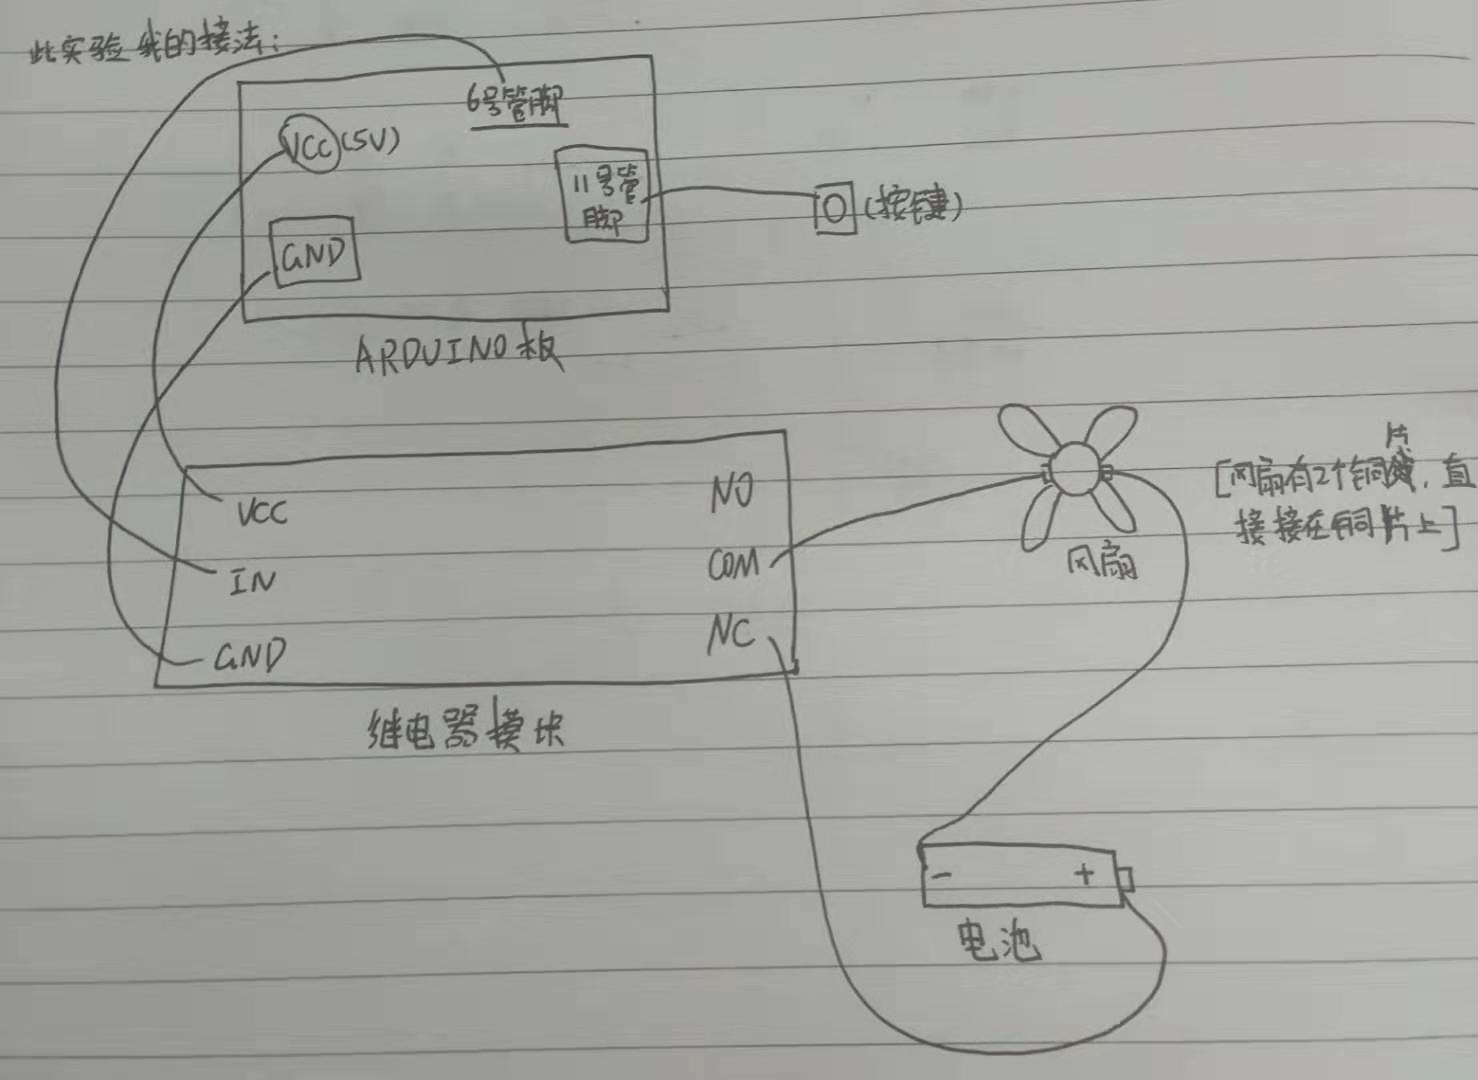 此实验我的接法:
6号管脚
VCC (5V)
11号管
脚
(按键)
GND
ARDUINO板
VCC
IN
GND
NO
COM
NC
继电器模块
风扇
片
[风扇有2个铜,直
接接在铜片上]
- +
电池